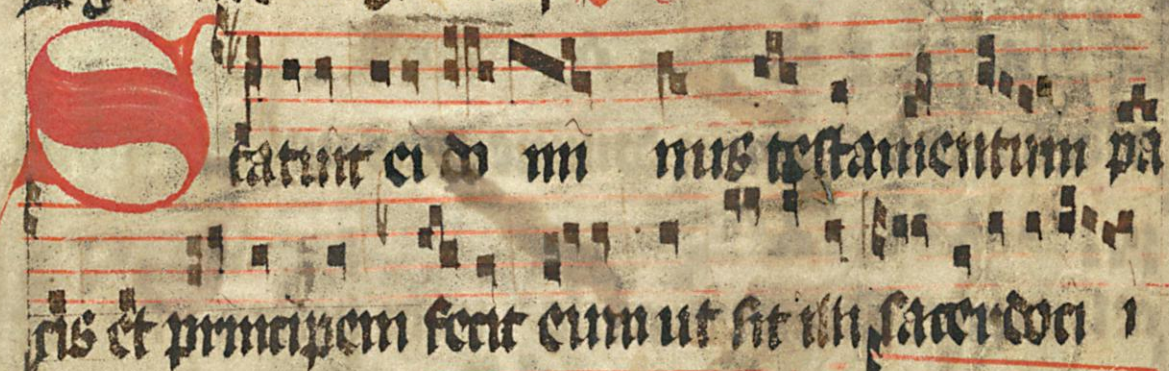 Statuit ei do mi nus testamentum pa
cis et principem fecit eum ut sit illi sacerdoci i